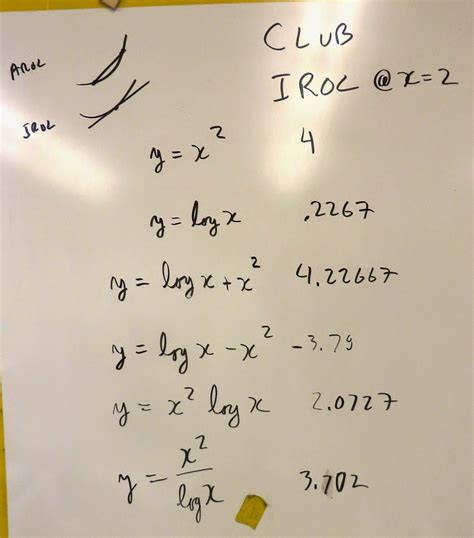 CLUB
AROC
IROC @ x=2
IROC
y = x² 4
y = log x .2267
y = log x + x² 4.22667
y = log x - x² -3.79
y = x² log x 2.0727
y = x²/log x 3.702